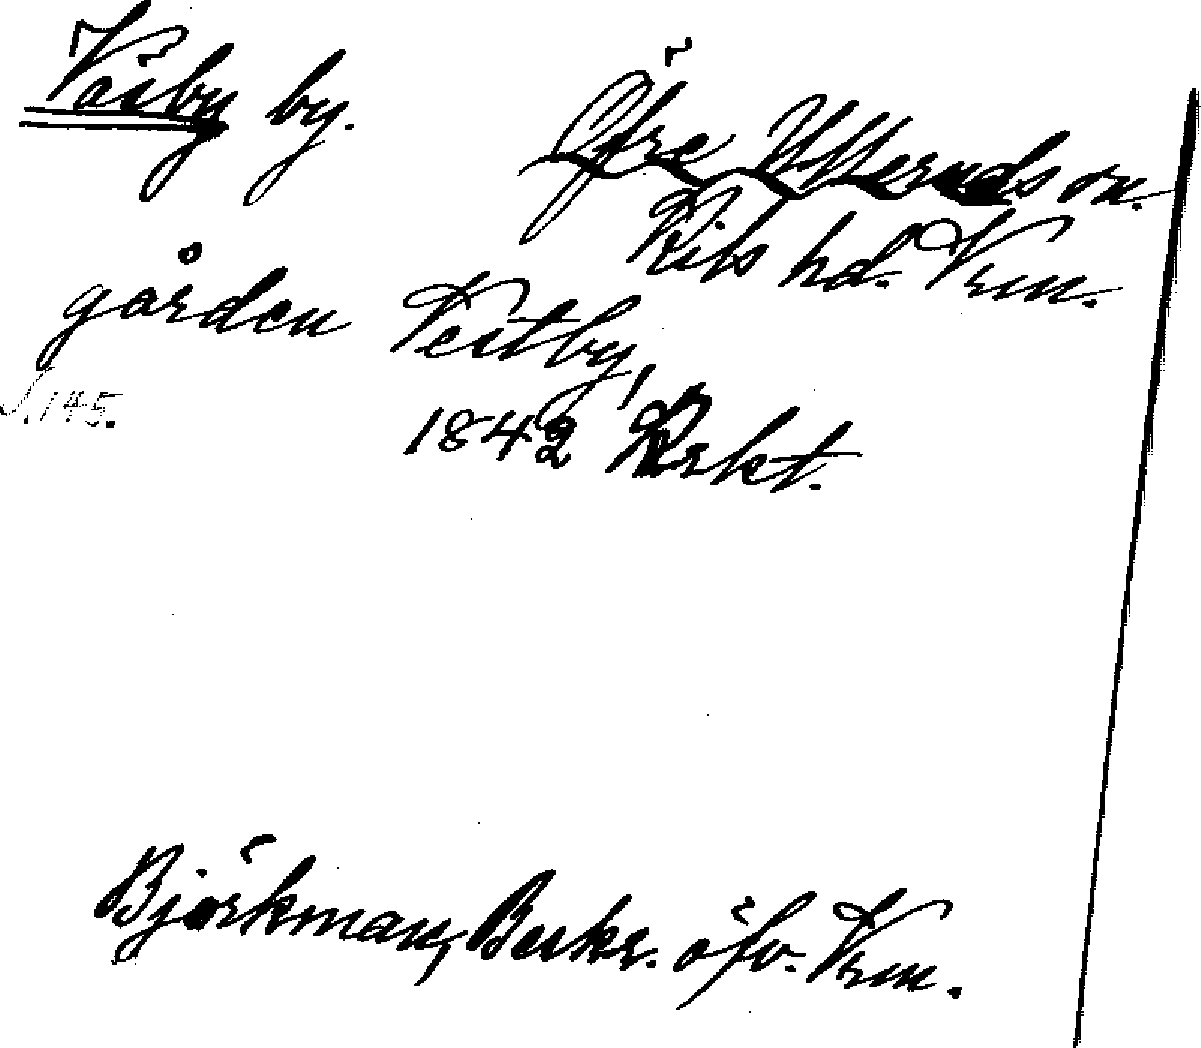 Väsby by.
Öfre Ullerud s on.
Kils hd. Vrm.
gården Vestby,
S. 145.
1842 Krkt.
Björkman, Beskr. öfv. Vrm.